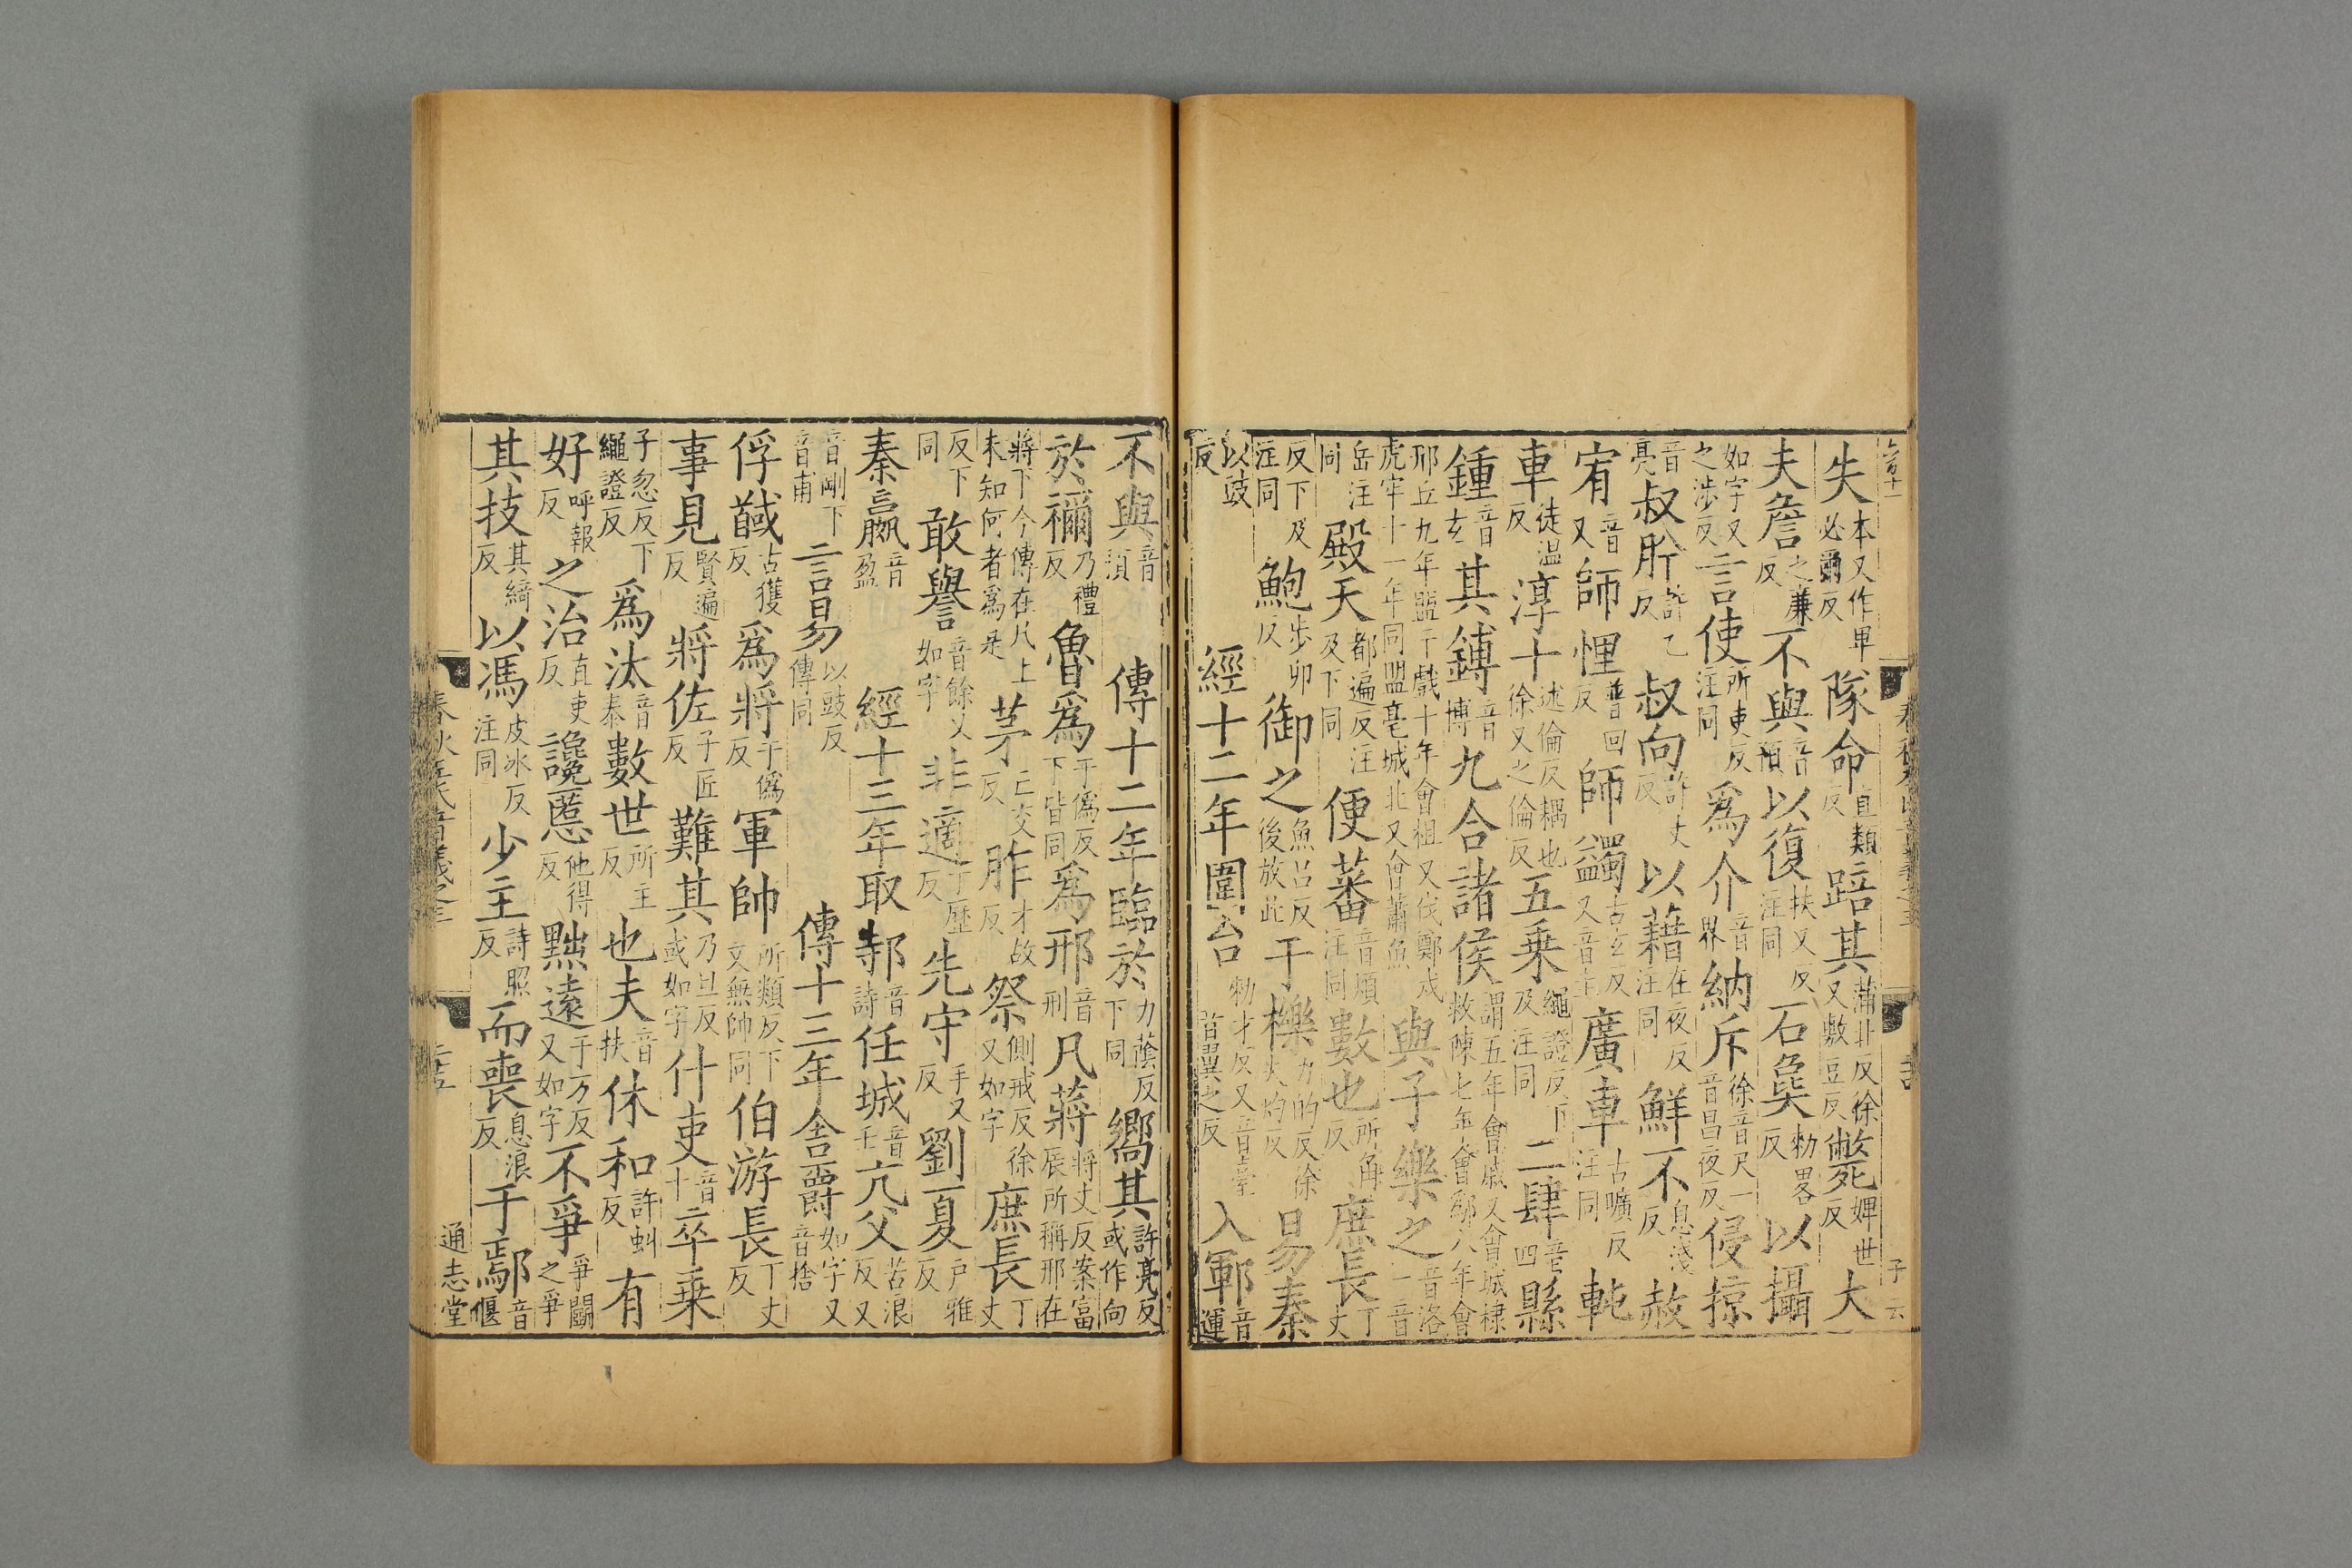 失本又作卑必爾反隊命直類反踣其蒲北反徐又敷豆反斃婢世反大
夫詹之廉反不與音預以復扶又反注同石㚟勑畧反以攝
如字又之涉反言使所吏反注同爲介音界納斥徐音尺一音昌夜反侵掠
音亮叔肸許乙反叔向許丈反以藉在夜反注同鮮不息淺反赦
宥音又師悝普回反師蠲古玄反又音圭廣車古曠反注同軘
車徒温反淳十述倫反耦也徐又之倫反五乘繩證反下及注同二肆音四縣
鍾音玄其鎛音博九合諸侯謂五年會戚又會城棣救陳七年會鄬八年會
邢丘九年盟于戲十年會柤又伐鄭戍虎牢十一年同盟亳城北又會蕭魚與子樂之音洛一音
岳注同殿天都遍反注及下同便蕃音煩注同數也所角反庶長丁丈
反下及注同鮑步卯反御之魚呂反後放此于櫟力的反徐失灼反易秦
以豉反經十二年圍台勑才反又音臺一音翼之反入鄆音運
不與音預傳十二年臨於力蔭反下同嚮其許亮反或作向
於禰乃禮反魯爲于僞反下皆同爲邢音刑凡蔣將丈反案富辰所稱邢在
蔣下今傳在凡上未知何者爲是茅亡交反胙才故反祭側戒反徐又如字庶長丁丈
反下同敢譽音餘又如字非適丁歷反先守手又反劉夏戸雅反
秦嬴音盈經十三年取邿音詩任城音壬亢父苦浪反又
音剛下音甫言易以豉反傳同傳十三年舍爵如字又音捨
俘馘古獲反爲將于僞反軍帥所類反下文無帥同伯游長丁丈反
事見賢遍反將佐子匠反難其乃旦反或如字什吏音十卒乗
子忽反下繩證反爲汰音泰數世所主反也夫音扶休和許虬反有
好呼報反之治直吏反讒慝他得反黜遠于万反又如字不爭爭鬬之爭
其技其綺反以馮皮冰反注同少主詩照反而喪息浪反于鄢音偃
通志堂